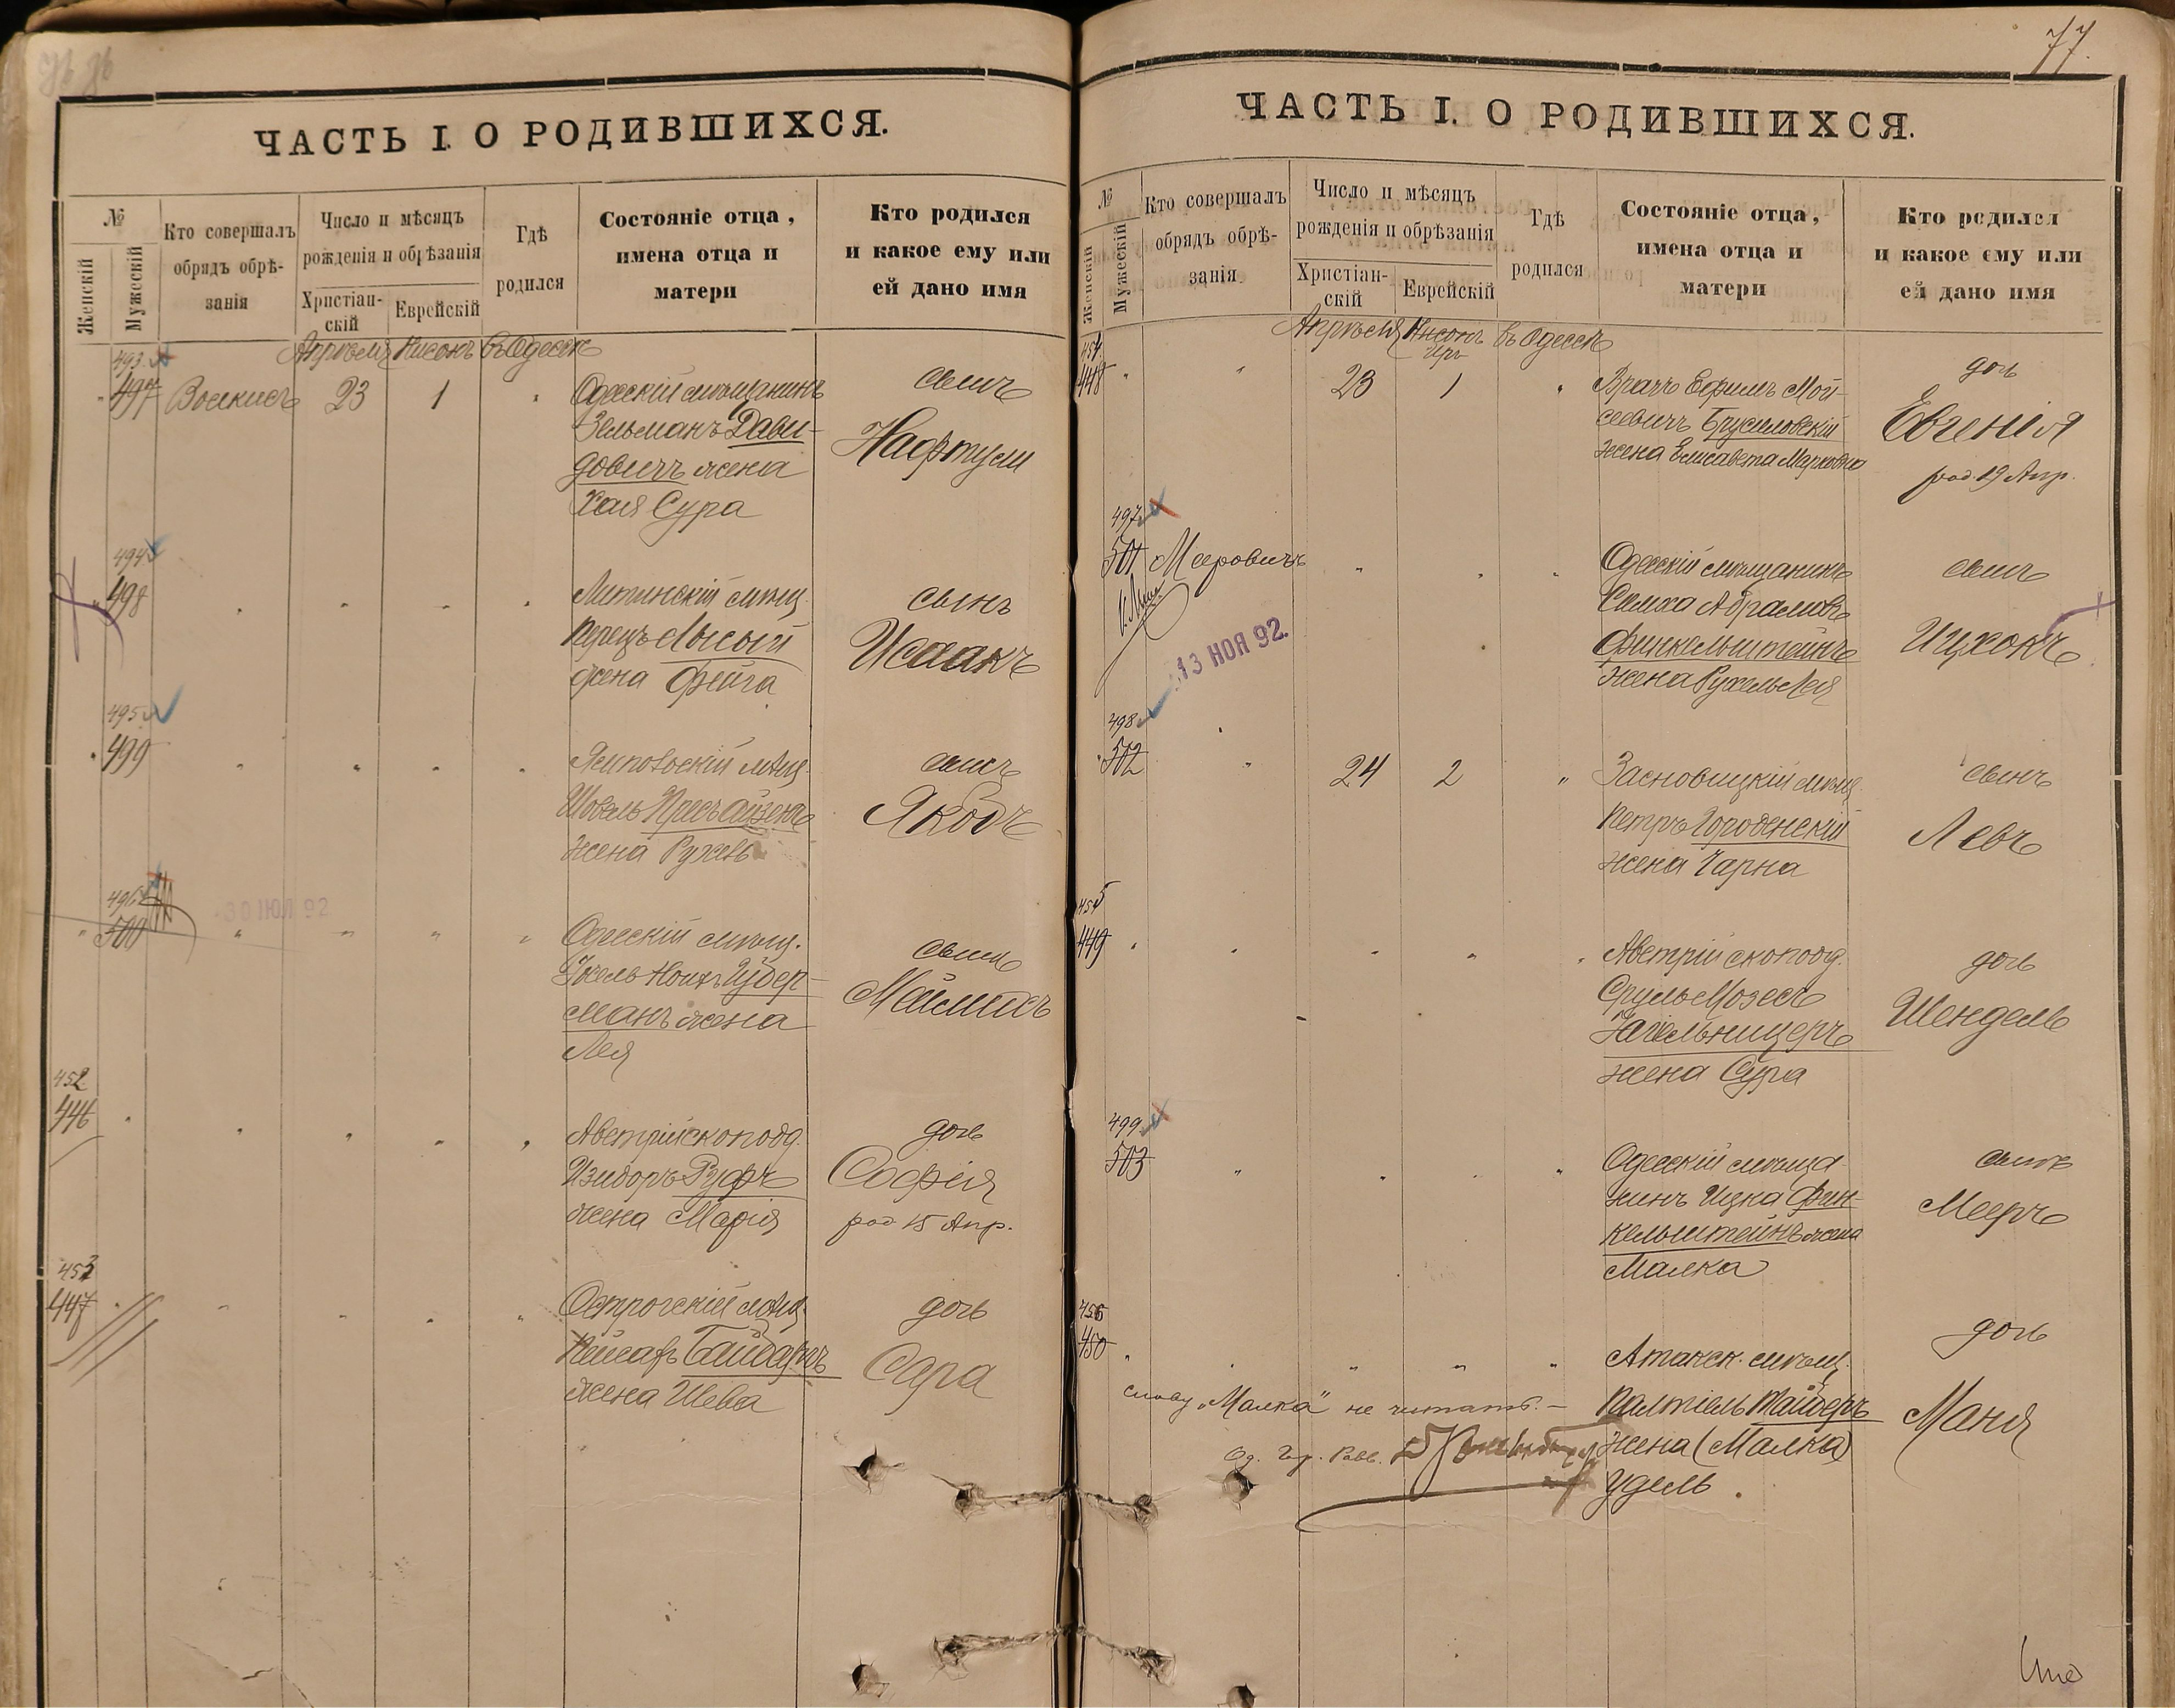 ЧАСТЬ I. О РОДИВШИХСЯ.
№
Женскій
Мужескій
Кто совершалъ
обрядъ обрѣ-
занія
Число и мѣсяцъ
рожденія и обрѣзанія
Христіан-
скій
Еврейскій
Гдѣ
родился
Состояніе отца,
имена отца и
матери
Кто родился
и какое ему или
ей дано имя
Апрѣля Нисонъ въ Одессѣ
493
497 23 1 " Одесскій мѣщанинъ
Зельманъ Дави-
довичъ жена
Хая Сура
сынъ
Нафтули
494
498 " " " " Литинскій мѣщ.
Перецъ Лысый
жена Фейга
сынъ
Исаакъ
495
499 " " " " мѣщ.
жена Рухль
сынъ
Яковъ
496
30 ЮЛ 92
500 " " " " Одесскій мѣщ.
манъ жена
Лея
сынъ
452
446 " " " " " Австрійскоподд.
Изидоръ Руфъ
жена Марія
дочь
Софія
род. 15 Апр.
453
447 " " " " " Острогскій мѣщ.
жена Шева
дочь
Сара
77.
ЧАСТЬ I. О РОДИВШИХСЯ.
№
Женскій
Мужескій
Кто совершалъ
обрядъ обрѣ-
занія
Число и мѣсяцъ
рожденія и обрѣзанія
Христіан-
скій
Еврейскій
Гдѣ
родился
Состояніе отца,
имена отца и
матери
Кто родился
и какое ему или
ей дано имя
Апрѣля Нисонъ въ Одессѣ
Иръ
454
448 " " 23 1 " Врачъ Ефимъ Мой-
сеевичъ Брусиловскій
жена Елисавета Марковна
дочь
Евгенія
род. 19 Апр.
497
501 Мееровичъ " " " Одесскій мѣщанинъ
Симха Абрамовъ
Финкельштейнъ
жена Рухель Лея
сынъ
Ицхокъ
13 НОЯ 92.
498
502 " 24 2 " Засновицкій мѣщ.
Петръ Городенскій
жена Чарна
сынъ
Левъ
455
449 " " " " " Австрійскоподд.
Сруль Мозесъ
Нагельницеръ
жена Сура
дочь
Шендель
499
503 " " " " Одесскій мѣща-
нинъ Ицка Фин-
кельштейнъ жена
Малка
сынъ
Мееръ
456
450 " " " " " Атакск. мѣщ.
Палтіель Тайберъ
жена (Малка)
Удель.
дочь
Маня
слову „Малка" не читать. –
Од. Гор. Равв.